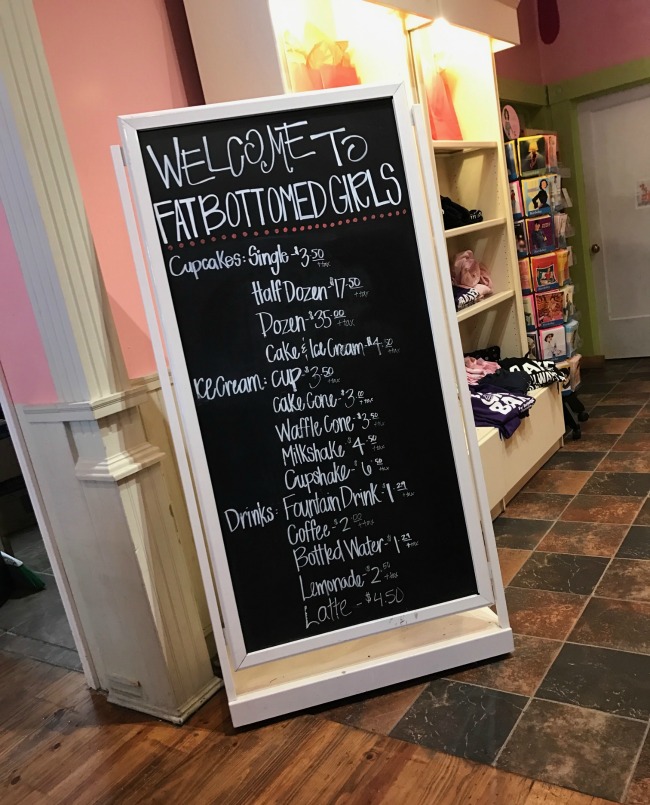 WELCOME TO
FATBOTTOMED GIRLS
Cupcakes: Single-$3.50 +tax
Half Dozen-$17.50 +tax
Dozen-$35.00 +tax
Cake & Ice Cream-$4.50 +tax
Ice Cream: cup-$3.50 +tax
cake Cone-$3.00 +tax
Waffle Cone-$3.50 +tax
Milkshake-$4.50 +tax
Cupshake-$6.50 +tax
Drinks: Fountain Drink-$1.29 +tax
Coffee-$2.00 +tax
Bottled Water-$1.29 +tax
Lemonade-$2.50 +tax
Latte-$4.50